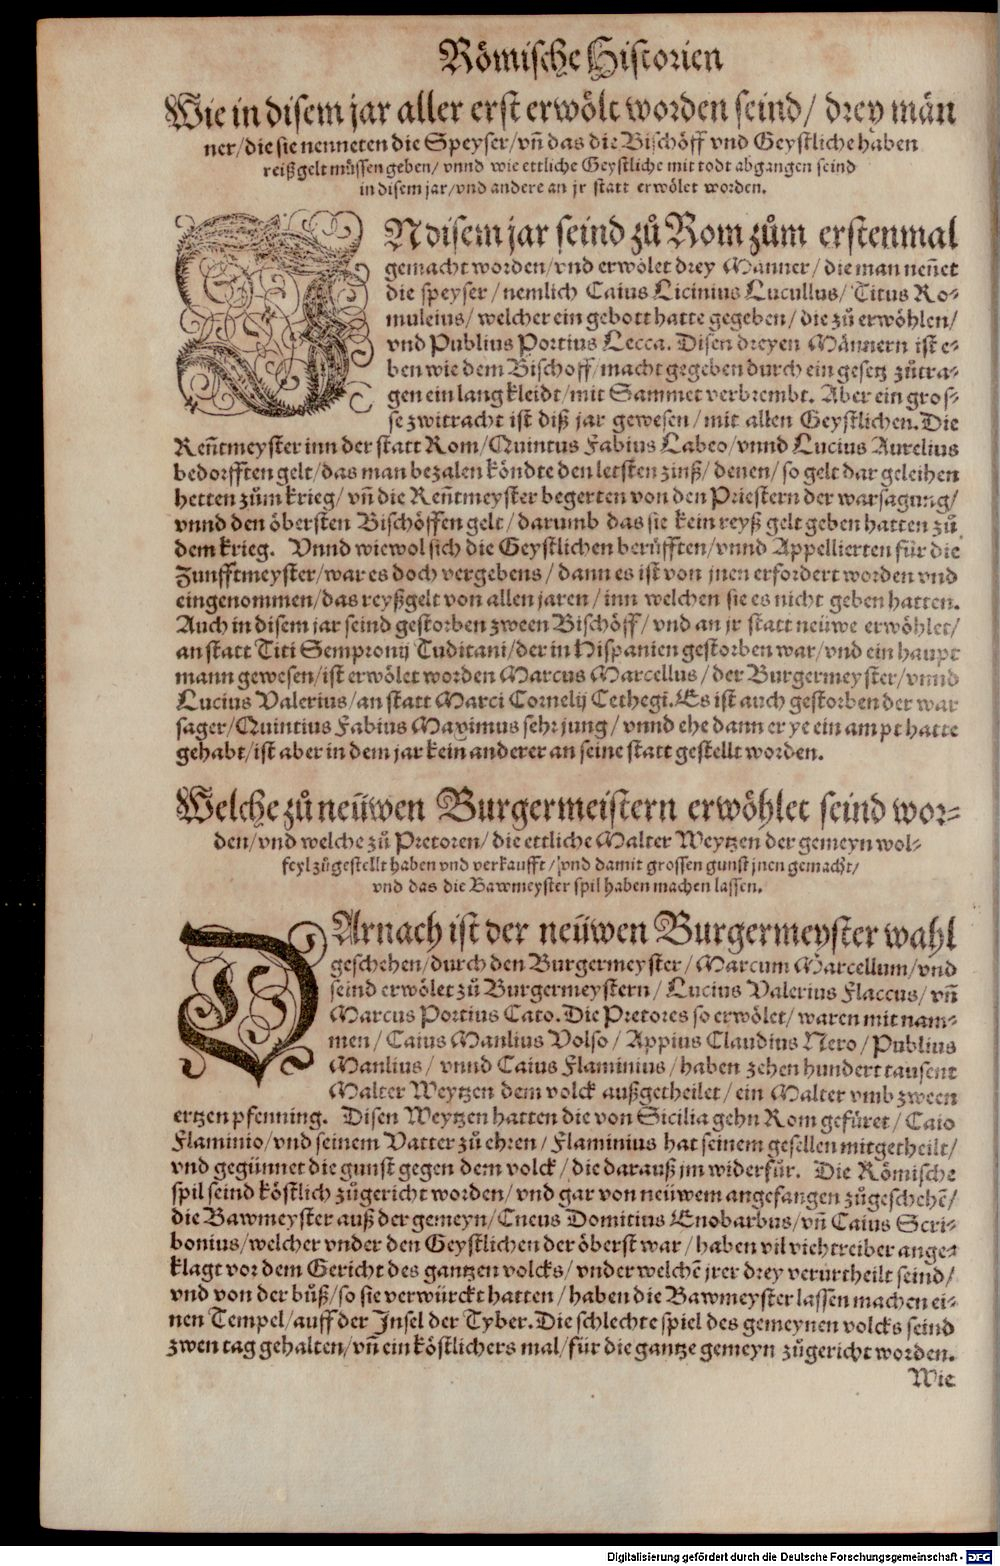 Römische Historien
Wie in disem jar aller erst erwölt worden seind/ drey män
ner/die sie nenneten die Speyser/vñ das die Bischöff vnd Geystliche haben
reißgelt müssen geben/ vnnd wie ettliche Geystliche mit todt abgangen seind
in disem jar/vnd andere an jr statt erwölet worden.
IN disem jar seind zů Rom zům erstenmal
gemacht worden/vnd erwölet drey Männer/die man neñet
die speyser/nemlich Caius Licinius Lucullus/Titus Ro-
muleius/welcher ein gebott hatte gegeben/die zů erwöhlen/
vnd Publius Portius Lecca. Disen dreyen Männern ist e-
ben wie dem Bischoff/macht gegeben durch ein gesetz zůtra-
gen ein lang kleidt/mit Sammet verbrembt. Aber ein gros-
se zwitracht ist diß jar gewesen/mit allen Geystlichen. Die
Reñtmeyster inn der statt Rom/Quintus Fabius Labeo/vnnd Lucius Aurelius
bedorfften gelt/das man bezalen köndte den letsten zinß/denen/so gelt dar geleihen
hetten zům krieg/vñ die Reñtmeyster begerten von den Priestern der warsagung/
vnnd den öbersten Bischöffen gelt/darumb das sie kein reyß gelt geben hatten zů
dem krieg. Vnnd wiewol sich die Geystlichen berůfften/vnnd Appellierten für die
Zunfftmeyster/war es doch vergebens/dann es ist von jnen erfordert worden vnd
eingenommen/das reyßgelt von allen jaren/inn welchen sie es nicht geben hatten.
Auch in disem jar seind gestorben zween Bischöff/vnd an jr statt neüwe erwöhlet/
an statt Titi Sempronij Tuditani/der in Hispanien gestorben war/vnd ein haupt
mann gewesen/ist erwölet worden Marcus Marcellus/der Burgermeyster/vnnd
Lucius Valerius/an statt Marci Cornelij Cethegi. Es ist auch gestorben der war
sager/Quintius Fabius Maximus sehr jung/vnnd ehe dann er ye ein ampt hatte
gehabt/ist aber in dem jar kein anderer an seine statt gestellt worden.
Welche zů neüwen Burgermeistern erwöhlet seind wor-
den/vnd welche zů Pretoren/die ettliche Malter Weytzen der gemeyn wol-
feyl zůgestellt haben vnd verkaufft/vnd damit grossen gunst jnen gemacht/
vnd das die Bawmeyster spil haben machen lassen.
DArnach ist der neüwen Burgermeyster wahl
geschehen/durch den Burgermeyster/Marcum Marcellum/vnd
seind erwölet zů Burgermeystern/Lucius Valerius Flaccus/vñ
Marcus Portius Cato. Die Pretores so erwölet/waren mit nam-
men/Caius Manlius Volso/Appius Claudius Nero/Publius
Manlius/vnnd Caius Flaminius/haben zehen hundert tausent
Malter Weytzen dem volck außgetheilet/ein Malter vmb zween
ertzen pfenning. Disen Weytzen hatten die von Sicilia gehn Rom gefüret/Caio
Flaminio/vnd seinem Vatter zů ehren/Flaminius hat seinem gesellen mitgetheilt/
vnd gegünnet die gunst gegen dem volck/die darauß jm widerfůr. Die Römische
spil seind köstlich zůgericht worden/vnd gar von neüwem angefangen zůgeschehẽ/
die Bawmeyster auß der gemeyn/Cneus Domitius Enobarbus/vñ Caius Scri-
bonius/welcher vnder den Geystlichen der öberst war/haben vil viehtreiber ange-
klagt vor dem Gericht des gantzen volcks/vnder welchẽ jrer drey verurtheilt seind/
vnd von der bůß/so sie verwürckt hatten/haben die Bawmeyster lassen machen ei-
nen Tempel/auff der Insel der Tyber. Die schlechte spiel des gemeynen volcks seind
zwen tag gehalten/vñ ein köstlichers mal/für die gantze gemeyn zůgericht worden.
Wie
Digitalisierung gefördert durch die Deutsche Forschungsgemeinschaft - DFG